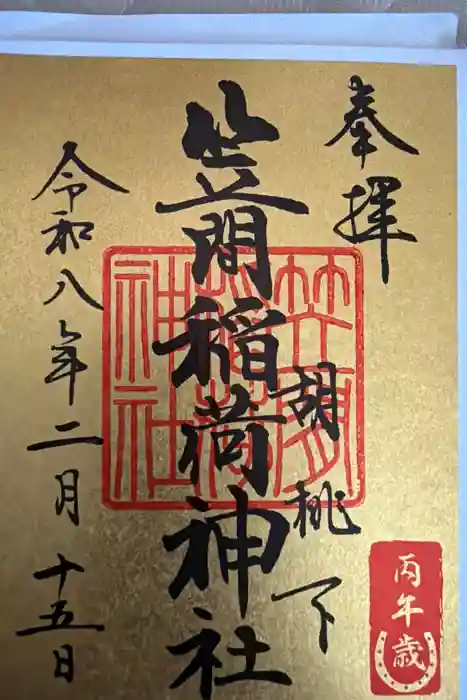 奉拝
胡桃下
笠間稲荷神社
令和八年二月十五日
笠間稲荷神社
丙午歳